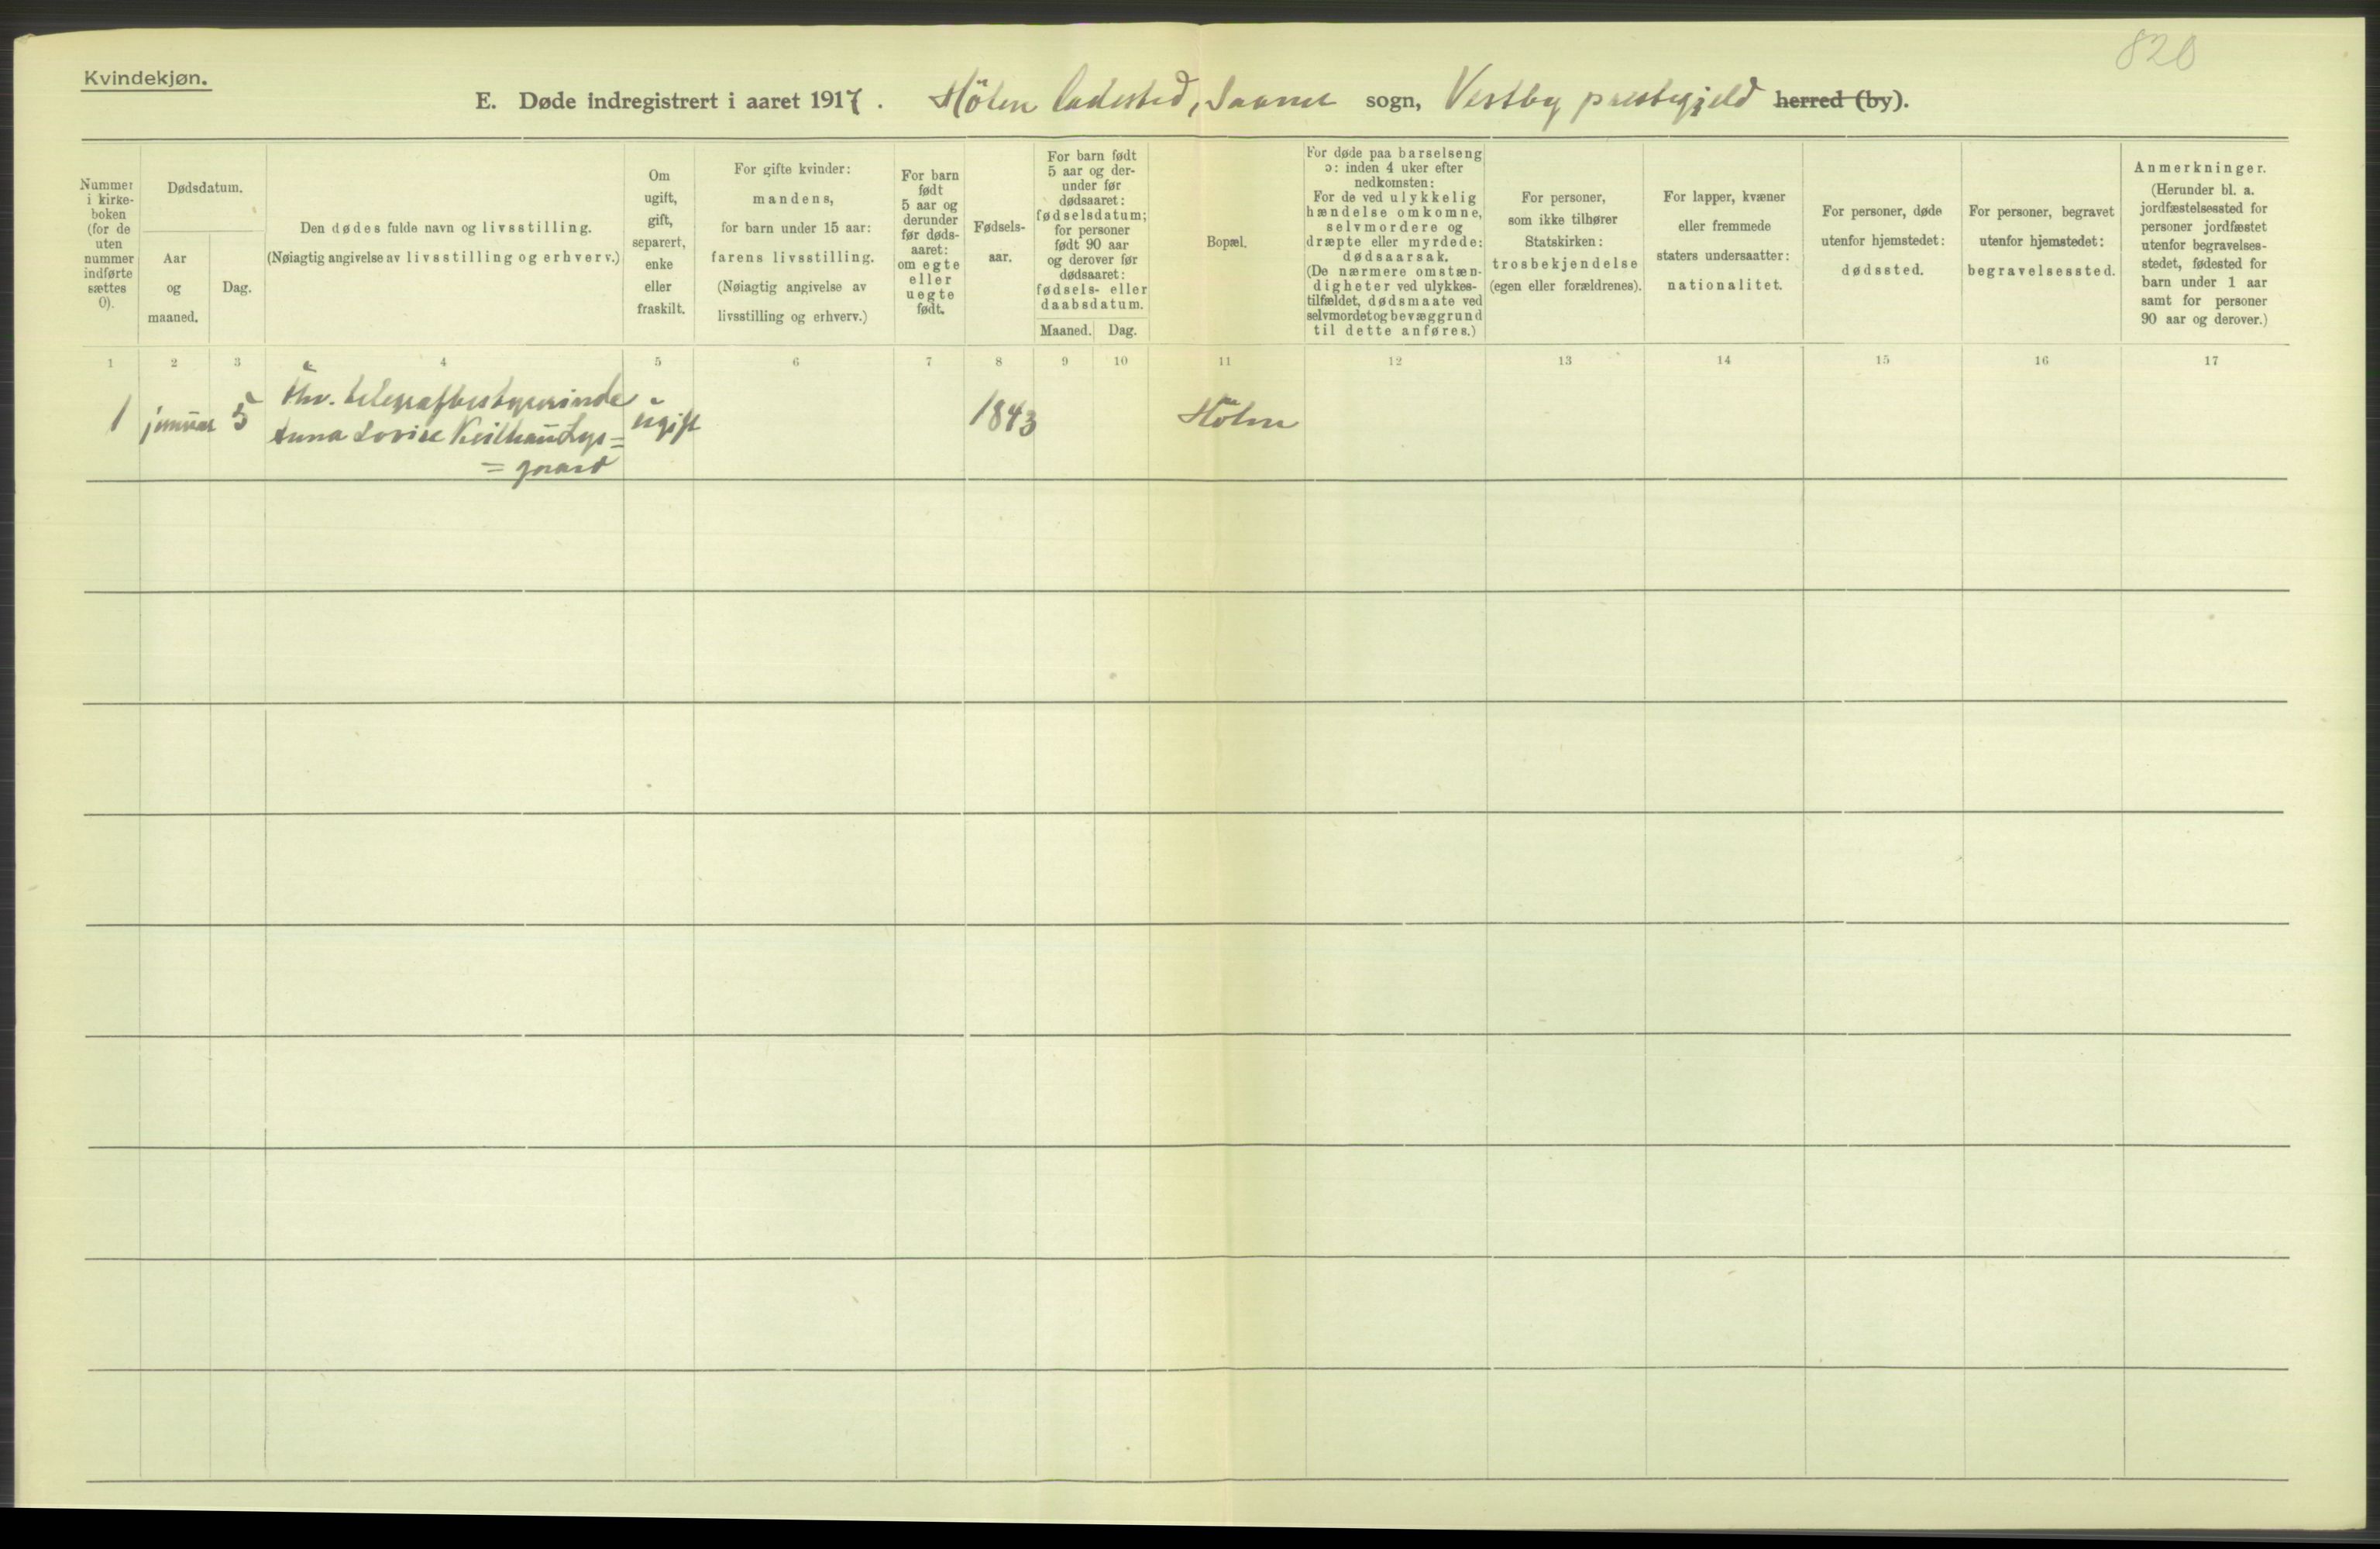 820
Kvindekjøn.
E. Døde indregistrert i aaret 1917. Hölen ladested, Saaner sogn, Vestby prestegjeld herred (by).
Nummer i kirke-boken (for de uten nummer indførte sættes 0).
Dødsdatum.
Aar og maaned.
Dag.
Den dødes fulde navn og livsstilling.
(Nøiagtig angivelse av livsstilling og erhverv.)
Om ugift, gift, separert, enke eller fraskilt.
For gifte kvinder:
mandens,
for barn under 15 aar:
farens livsstilling.
(Nøiagtig angivelse av
livsstilling og erhverv.)
For barn født 5 aar og derunder før døds-aaret: om egte eller uegte født.
Fødsels-
aar.
For barn født
5 aar og der-
under før
dødsaaret:
fødselsdatum;
for personer
født 90 aar
og derover før
dødsaaret:
fødsels- eller
daabsdatum.
Maaned. Dag.
Bopæl.
For døde paa barselseng
ɔ: inden 4 uker efter
nedkomsten:
For de ved ulykkelig
hændelse omkomne,
selvmordere og
dræpte eller myrdede:
dødsaarsak.
(De nærmere omstæn-
digheter ved ulykkes-
tilfældet, dødsmaate ved
selvmordet og bevæggrund
til dette anføres.)
For personer,
som ikke tilhører
Statskirken:
trosbekjendelse
(egen eller forældrenes).
For lapper, kvæner
eller fremmede
staters undersaatter:
nationalitet.
For personer, døde
utenfor hjemstedet:
dødssted.
For personer, begravet
utenfor hjemstedet:
begravelsessted.
Anmerkninger.
(Herunder bl. a.
jordfæstelsessted for
personer jordfæstet
utenfor begravelses-
stedet, fødested for
barn under 1 aar
samt for personer
90 aar og derover.)
1 2 3 4 5 6 7 8 9 10 11 12 13 14 15 16 17
telegrafbestyrerinde
1 januar 5 Anna Lovise Keilhau Lys= ugift 1843 Hölen
=gaard